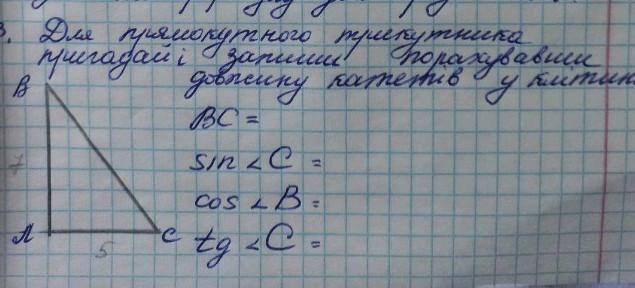 3. Для прямокутного трикутника
пригадай і запиши порахувавши
довжину катетів у клітин
B
BC =
7
sin ∠C =
cos ∠B =
A
5
C
tg ∠C =